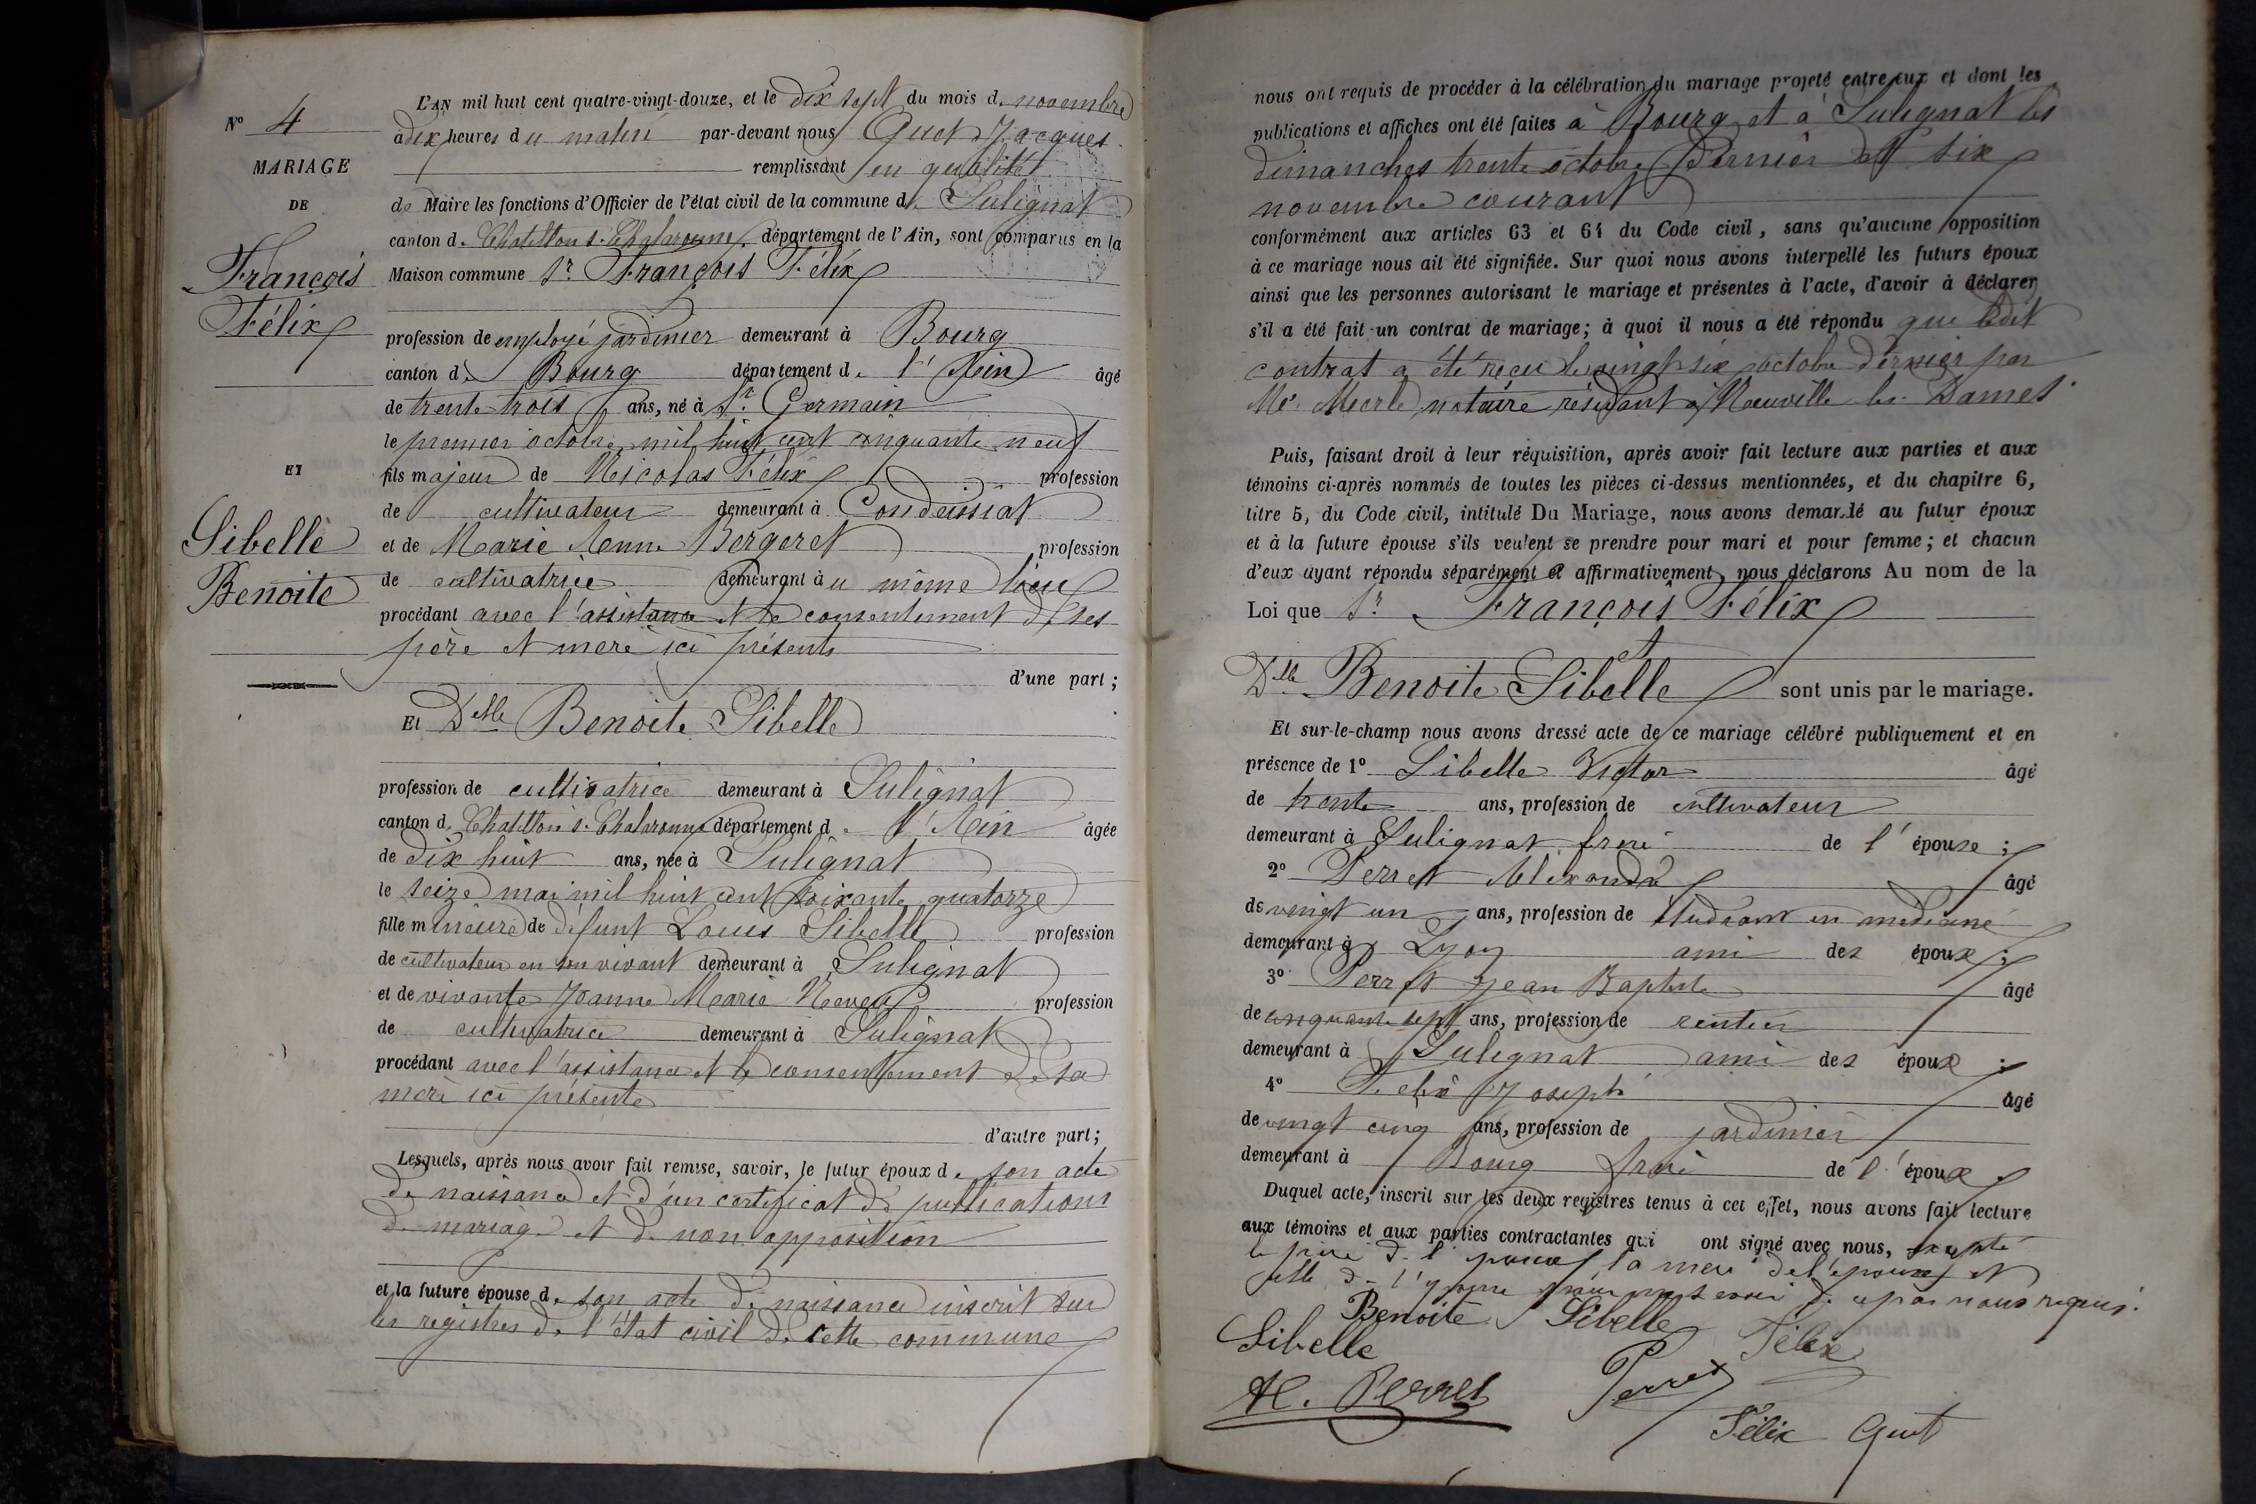 N° 4
MARIAGE
DE
François
Félix
ET
Sibelle
Benoite
L'AN mil huit cent quatre-vingt-douze, et le dix sept du mois de novembre
à dix heures du matin par-devant nous Quet Jacques
remplissant en qualité
de Maire les fonctions d'Officier de l'état civil de la commune de Sulignat
canton de Chatillon s. Chalaronne, département de l'Ain, sont comparus en la
Maison commune Sr François Félix
profession de employé jardinier demeurant à Bourg
canton de Bourg département de l'Ain âgé
de trente trois ans, né à St. Germain
le premier octobre mil huit cent cinquante neuf
fils majeur de Nicolas Félix profession
de cultivateur demeurant à Condeissiat
et de Marie Anne Bergeret profession
de cultivatrice demeurant à u même lieu
procédant avec l'assistance et le consentement de ses
père et mère ici présents
d'une part;
Et Delle Benoite Sibelle
profession de cultivatrice demeurant à Sulignat
canton de Chatillon s. Chalaronne département de l'Ain âgée
de dix huit ans, née à Sulignat
le seize mai mil huit cent soixante quatorze
fille mineure de défunt Louis Sibelle profession
de cultivateur en son vivant demeurant à Sulignat
et de vivante Jeanne Marie Neveu profession
de cultivatrice demeurant à Sulignat
procédant avec l'assistance et le consentement de sa
mère ici présente
d'autre part;
Lesquels, après nous avoir fait remise, savoir, le futur époux de son acte
de naissance et d'un certificat de publications
de mariage et de non opposition
et la future épouse de son acte de naissance inscrit sur
les registres de l'état civil de cette commune
nous ont requis de procéder à la célébration du mariage projeté entre eux et dont les
publications et affiches ont été faites à Bourg et à Sulignat les
dimanches trente octobre dernier et six
novembre courant
conformément aux articles 63 et 64 du Code civil, sans qu'aucune opposition
à ce mariage nous ait été signifiée. Sur quoi nous avons interpellé les futurs époux
ainsi que les personnes autorisant le mariage et présentes à l'acte, d'avoir à déclarer
s'il a été fait un contrat de mariage; à quoi il nous a été répondu que ledit
contrat a été reçu le vingt six octobre dernier par
Me. Merle notaire résidant à Neuville les Dames
Puis, faisant droit à leur réquisition, après avoir fait lecture aux parties et aux
témoins ci-après nommés de toutes les pièces ci-dessus mentionnées, et du chapitre 6,
titre 5, du Code civil, intitulé Du Mariage, nous avons demandé au futur époux
et à la future épouse s'ils veulent se prendre pour mari et pour femme; et chacun
d'eux ayant répondu séparément et affirmativement, nous déclarons Au nom de la
Loi que Sr François Félix
et
Delle Benoite Sibelle sont unis par le mariage.
Et sur-le-champ nous avons dressé acte de ce mariage célébré publiquement et en
présence de 1° Sibelle Victor âgé
de trente ans, profession de cultivateur
demeurant à Sulignat frère de l'épouse;
2° Perret Alexandre âgé
de vingt un ans, profession de étudiant en médecine
demeurant à Lyon ami des époux;
3° Perret Jean Baptiste âgé
de cinquante sept ans, profession de rentier
demeurant à Sulignat ami des époux;
4° Félix Joseph âgé
de vingt cinq ans, profession de jardinier
demeurant à Bourg frère de l'époux.
Duquel acte, inscrit sur les deux registres tenus à cet effet, nous avons fait lecture
aux témoins et aux parties contractantes qui ont signé avec nous, excepté
le père de l'époux la mère de l'époux et
celle de l'épouse pour ne savoir de ce par nous requis.
Benoite Sibelle
Sibelle Félix
Al. Perret Perret
Félix Quet